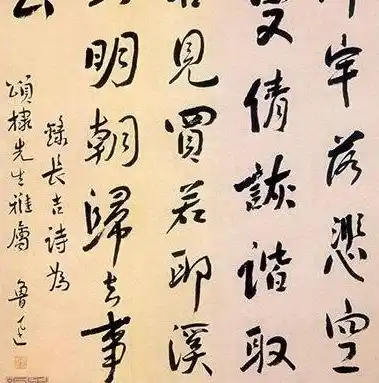 牢落悲空
曼倩詼諧取
見買若耶溪
明朝歸去事
錄長吉詩為
頌棣先生雅屬 魯迅